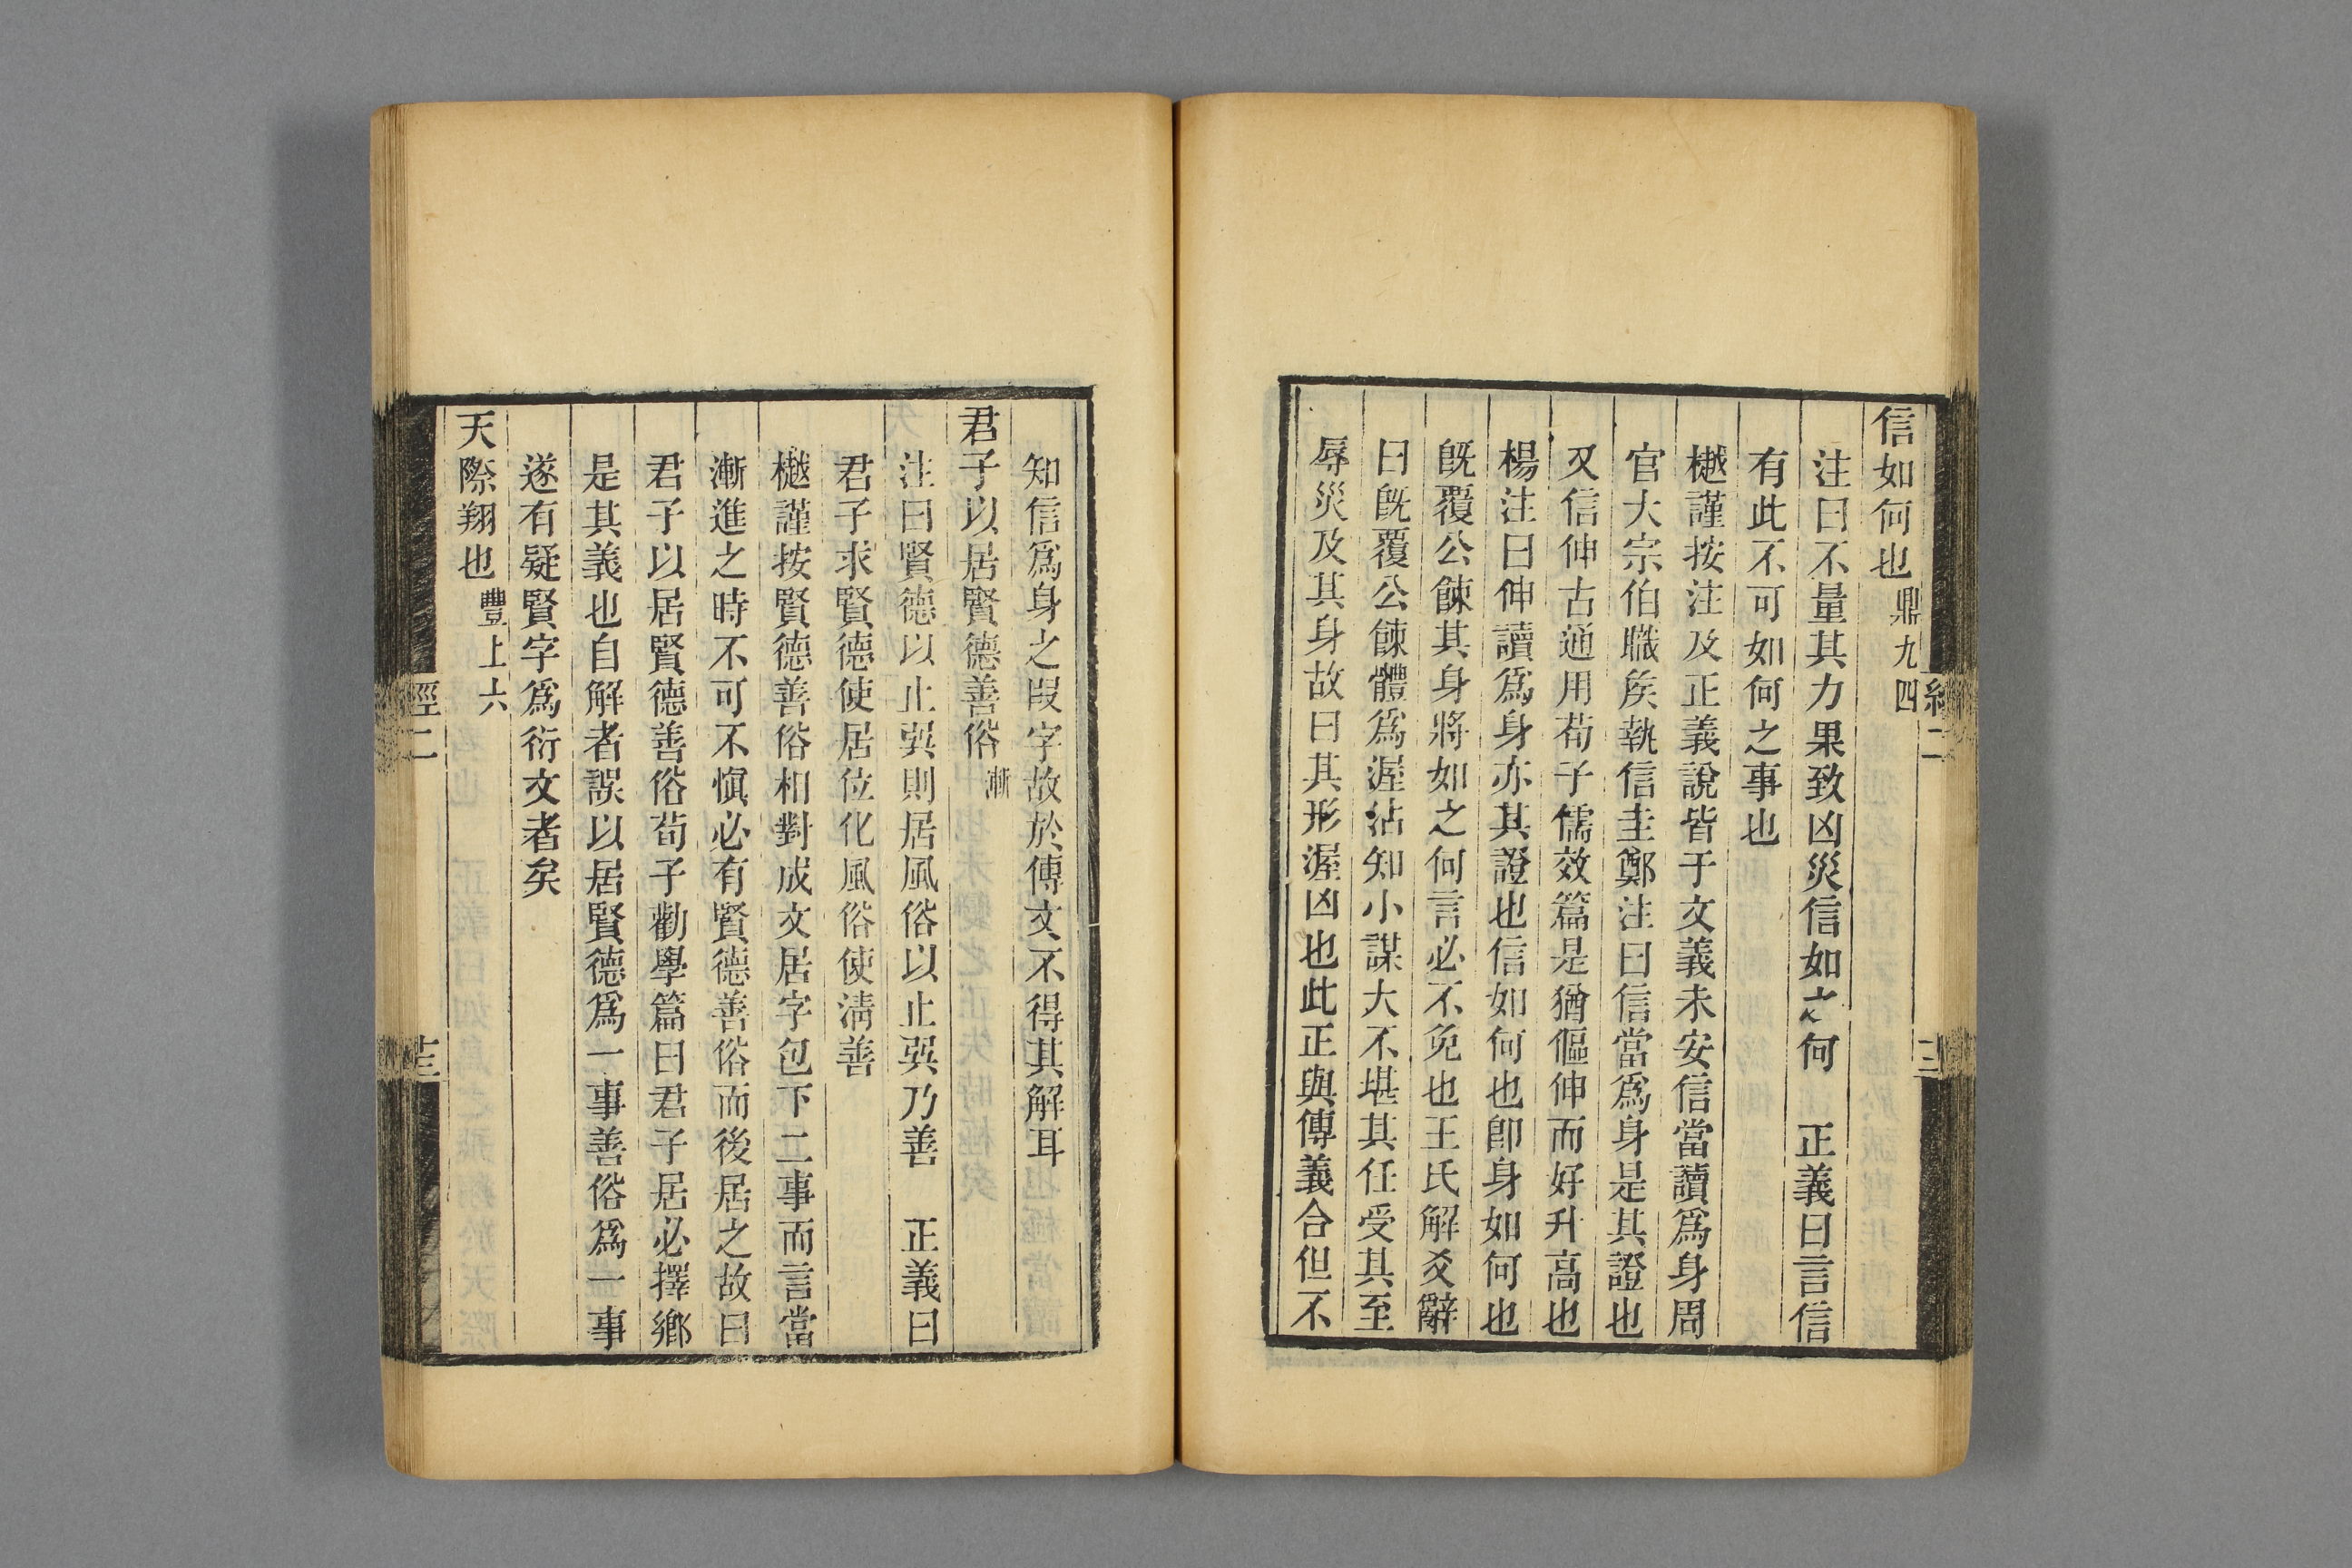 信如何也鼎九四
注曰不量其力果致凶災信如之何　正義曰言信
有此不可如何之事也
樾謹按注及正義說皆于文義未安信當讀爲身周
官大宗伯職矦執信圭鄭注曰信當爲身是其證也
又信伸古通用荀子儒效篇是猶傴伸而好升高也
楊注曰伸讀爲身亦其證也信如何也卽身如何也
旣覆公餗其身將如之何言必不免也王氏解爻辭
曰旣覆公餗體爲渥沾知小謀大不堪其任受其至
辱災及其身故曰其形渥凶也此正與傳義合但不
知信爲身之叚字故於傳文不得其解耳
君子以居賢德善俗漸
注曰賢德以止巽則居風俗以止巽乃善　正義曰
君子求賢德使居位化風俗使淸善
樾謹按賢德善俗相對成文居字包下二事而言當
漸進之時不可不愼必有賢德善俗而後居之故曰
君子以居賢德善俗荀子勸學篇曰君子居必擇鄉
是其義也自解者誤以居賢德爲一事善俗爲一事
遂有疑賢字爲衍文者矣
天際翔也豐上六
經二